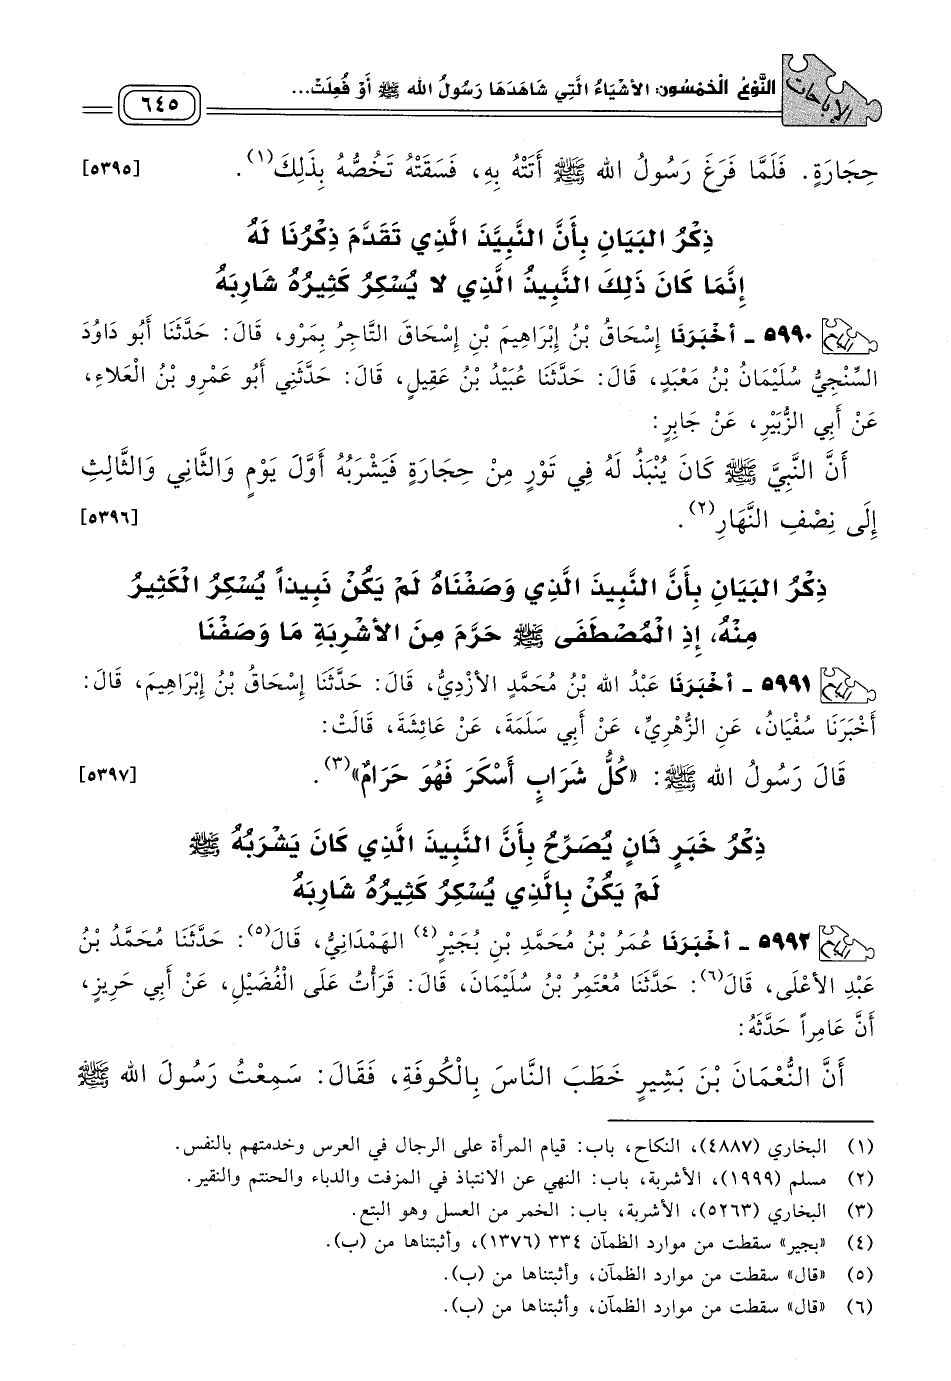 الإباحات
النَّوْعُ الْخَمْسُون: الأَشْيَاءُ الَّتِي شَاهَدَهَا رَسُولُ الله ﷺ أَوْ فُعِلَتْ...
٦٤٥
حِجَارَةٍ. فَلَمَّا فَرَغَ رَسُولُ الله ﷺ أَتَتْهُ بِهِ، فَسَقَتْهُ تَخُصُّهُ بِذَلِكَ(١). [٥٣٩٥]
ذِكْرُ البَيَانِ بِأَنَّ النَّبِيَّذَ الَّذِي تَقَدَّمَ ذِكْرُنَا لَهُ
إِنَّمَا كَانَ ذَلِكَ النَّبِيذُ الَّذِي لا يُسْكِرُ كَثِيرُهُ شَارِبَهُ
٥٩٩٠ - أخْبَرَنَا إِسْحَاقُ بْنُ إِبْرَاهِيمَ بْنِ إِسْحَاقَ التَّاجِرُ بِمَرْو، قَالَ: حَدَّثَنَا أَبُو دَاوُدَ
السِّنْجِيُّ سُلَيْمَانُ بْنُ مَعْبَدٍ، قَالَ: حَدَّثَنَا عُبَيْدُ بْنُ عَقِيلٍ، قَالَ: حَدَّثَنِي أَبُو عَمْرِو بْنُ الْعَلاءِ،
عَنْ أَبِي الزُّبَيْرِ، عَنْ جَابِرٍ:
أَنَّ النَّبِيَّ ﷺ كَانَ يُنْبَذُ لَهُ فِي تَوْرٍ مِنْ حِجَارَةٍ فَيَشْرَبُهُ أَوَّلَ يَوْمٍ وَالثَّانِي وَالثَّالِثِ
إِلَى نِصْفِ النَّهَارِ(٢). [٥٣٩٦]
ذِكْرُ البَيَانِ بِأَنَّ النَّبِيذَ الَّذِي وَصَفْنَاهُ لَمْ يَكُنْ نَبِيذاً يُسْكِرُ الْكَثِيرُ
مِنْهُ، إِذِ الْمُصْطَفَى ﷺ حَرَّمَ مِنَ الأَشْرِبَةِ مَا وَصَفْنَا
٥٩٩١ - أخْبَرَنَا عَبْدُ الله بْنُ مُحَمَّدٍ الأَزْدِيُّ، قَالَ: حَدَّثَنَا إِسْحَاقُ بْنُ إِبْرَاهِيمَ، قَالَ:
أَخْبَرَنَا سُفْيَانُ، عَنِ الزُّهْرِيِّ، عَنْ أَبِي سَلَمَةَ، عَنْ عَائِشَةَ، قَالَتْ:
قَالَ رَسُولُ الله ﷺ: «كُلُّ شَرَابٍ أَسْكَرَ فَهُوَ حَرَامٌ»(٣). [٥٣٩٧]
ذِكْرُ خَبَرٍ ثَانٍ يُصَرِّحُ بِأَنَّ النَّبِيذَ الَّذِي كَانَ يَشْرَبُهُ ﷺ
لَمْ يَكُنْ بِالَّذِي يُسْكِرُ كَثِيرُهُ شَارِبَهُ
٥٩٩٢ - أخْبَرَنَا عُمَرُ بْنُ مُحَمَّدِ بْنِ بُجَيْرٍ(٤) الهَمْدَانِيُّ، قَالَ(٥): حَدَّثَنَا مُحَمَّدُ بْنُ
عَبْدِ الأَعْلَى، قَالَ(٦): حَدَّثَنَا مُعْتَمِرُ بْنُ سُلَيْمَانَ، قَالَ: قَرَأْتُ عَلَى الْفُضَيْلِ، عَنْ أَبِي حَرِيزٍ،
أَنَّ عَامِراً حَدَّثَهُ:
أَنَّ النُّعْمَانَ بْنَ بَشِيرٍ خَطَبَ النَّاسَ بِالْكُوفَةِ، فَقَالَ: سَمِعْتُ رَسُولَ الله ﷺ
(١) البخاري (٤٨٨٧)، النكاح، باب: قيام المرأة على الرجال في العرس وخدمتهم بالنفس.
(٢) مسلم (١٩٩٩)، الأشربة، باب: النهي عن الانتباذ في المزفت والدباء والحنتم والنقير.
(٣) البخاري (٥٢٦٣)، الأشربة، باب: الخمر من العسل وهو البتع.
(٤) «بجير» سقطت من موارد الظمآن ٣٣٤ (١٣٧٦)، وأثبتناها من (ب).
(٥) «قال» سقطت من موارد الظمآن، وأثبتناها من (ب).
(٦) «قال» سقطت من موارد الظمآن، وأثبتناها من (ب).